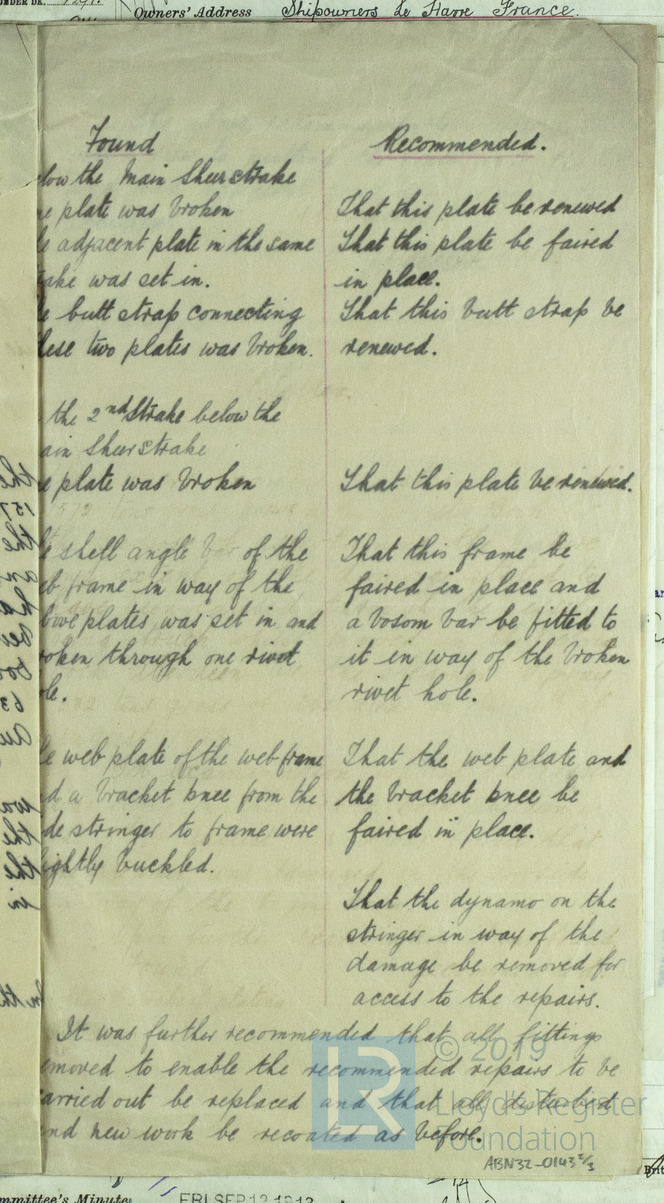 Owners' Address Shipowners Le Havre France.
Found
Recommended.
low the Main Sheerstrake
e plate was broken
That this plate be renewed
e adjacent plate in the same
That this plate be faired
ake was set in.
in place.
e butt strap connecting
That this butt strap be
hese two plates was broken.
renewed.
the 2nd Strake below the
ain Sheerstrake
e plate was broken
That this plate be renewed.
e shell angle bar of the
That this frame be
eb frame in way of the
faired in place and
bove plates was set in and
a bosom bar be fitted to
roken through one rivet
it in way of the broken
ole.
rivet hole.
e web plate of the web frame
That the web plate and
d a bracket knee from the
the bracket knee be
de stringer to frame were
faired in place.
ightly buckled.
That the dynamo on the
stringer in way of the
damage be removed for
access to the repairs.
It was further recommended that all fittings
emoved to enable the recommended repairs to be
carried out be replaced and that all disturbed
nd new work be recoated as before.
© 2019
Lloyd's Register
Foundation
ABN32-0143 2/3
mmittee's Minute:
FRI SEP 12 1913